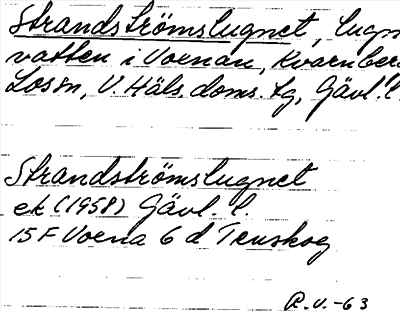 Strandströmslugnet, lugn
vatten i Voxnan, Kvarnberg
Los sn, V. Häls. doms. tg, Gävl. l.
Strandströmslugnet
ek (1958) Gävl. l.
15 F Voxna 6 d Tenskog
R.V. -63